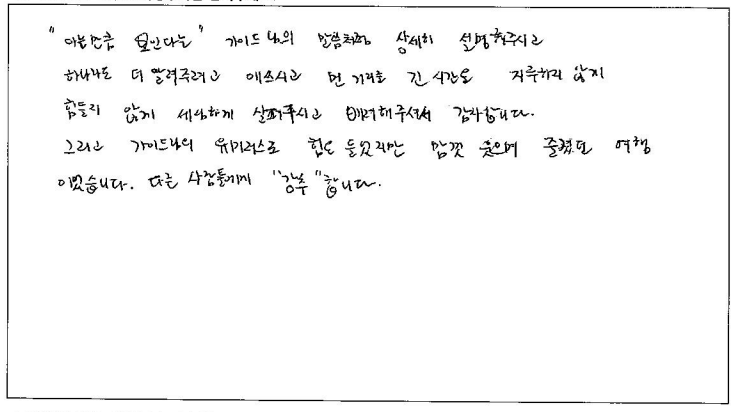 "아는만큼 보인다는" 가이드님의 말씀처럼 상세히 설명해주시고
하나라도 더 알려주려고 애쓰시고 먼 거리와 긴 시간을 지루하지 않게
힘들지 않게 세심하게 살펴주시고 배려해주셔서 감사합니다.
그리고 가이드님의 유머러스로 힘은 들었지만 맘껏 웃으며 즐겼던 여행
이었습니다. 다른 사람들에게 "강추"합니다.